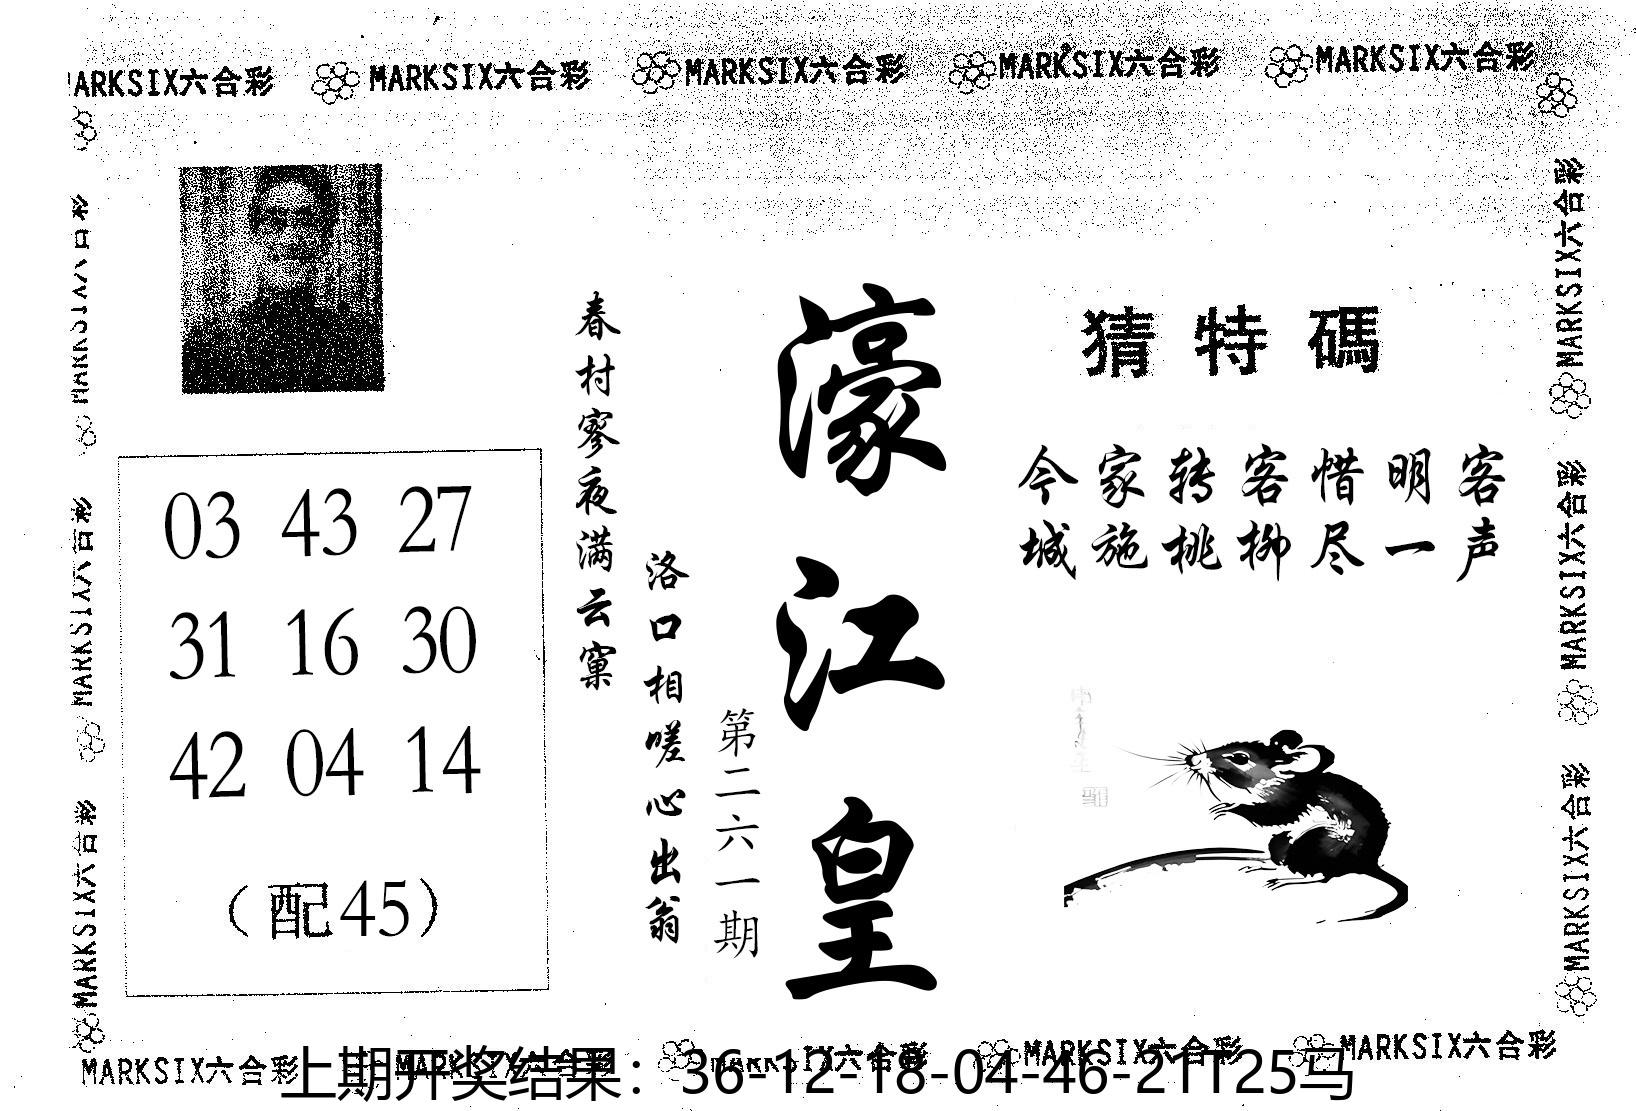 MARKSIX六合彩 MARKSIX六合彩 MARKSIX六合彩 MARKSIX六合彩 MARKSIX六合彩
MARKSIX六合彩
MARKSIX六合彩
MARKSIX六合彩
03 43 27
31 16 30
42 04 14
（配45）
春村寥夜满云窠
洛口相嗟心出翁
第二六一期
濠江皇
猜特碼
今家转客惜明客
城施桃柳尽一声
MARKSIX六合彩
MARKSIX六合彩
MARKSIX六合彩
MARKSIX六合彩 MARKSIX六合彩 MARKSIX六合彩 MARKSIX六合彩 MARKSIX六合彩
上期开奖结果：36-12-18-04-46-21T25马